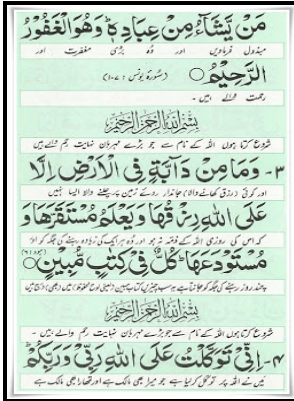 مَنْ يَّشَآءُ مِنْ عِبَادِهٖ ؕ وَهُوَ الْغَفُوْرُ
مبذول فرماویں اور وہ بڑی مغفرت اور
الرَّحِيْمُ ○ (سُورَۃ یُونس : ۱۰۷)
رحمت والے ہیں ۔
بِسْمِ اللهِ الرَّحْمٰنِ الرَّحِيْمِ
شروع کرتا ہوں اللہ کے نام سے جو بڑے مہربان نہایت رحم والے ہیں
۳- وَمَا مِنْ دَآبَّةٍ فِى الْاَرْضِ اِلَّا
اور کوئی (رزق کھانے والا) جاندار روئے زمین پر چلنے والا ایسا نہیں
عَلَى اللهِ رِزْقُهَا وَيَعْلَمُ مُسْتَقَرَّهَا وَ
کہ اس کی روزی اللہ کے ذمہ نہ ہو اور وہ ہر ایک کی زیادہ رہنے کی جگہ کو اور
مُسْتَوْدَعَهَا ؕ كُلٌّ فِىْ كِتٰبٍ مُّبِيْنٍ ○
چند روز رہنے کی جگہ کو جانتا ہے سب چیزیں کتاب مبین
بِسْمِ اللهِ الرَّحْمٰنِ الرَّحِيْمِ
شروع کرتا ہوں اللہ کے نام سے جو بڑے مہربان نہایت رحم والے ہیں ۔
۴- اِنِّىْ تَوَكَّلْتُ عَلَى اللهِ رَبِّىْ وَرَبِّكُمْ ؕ
میں نے اللہ پر توکل کر لیا ہے جو میرا بھی مالک ہے اور تمھارا بھی مالک ہے